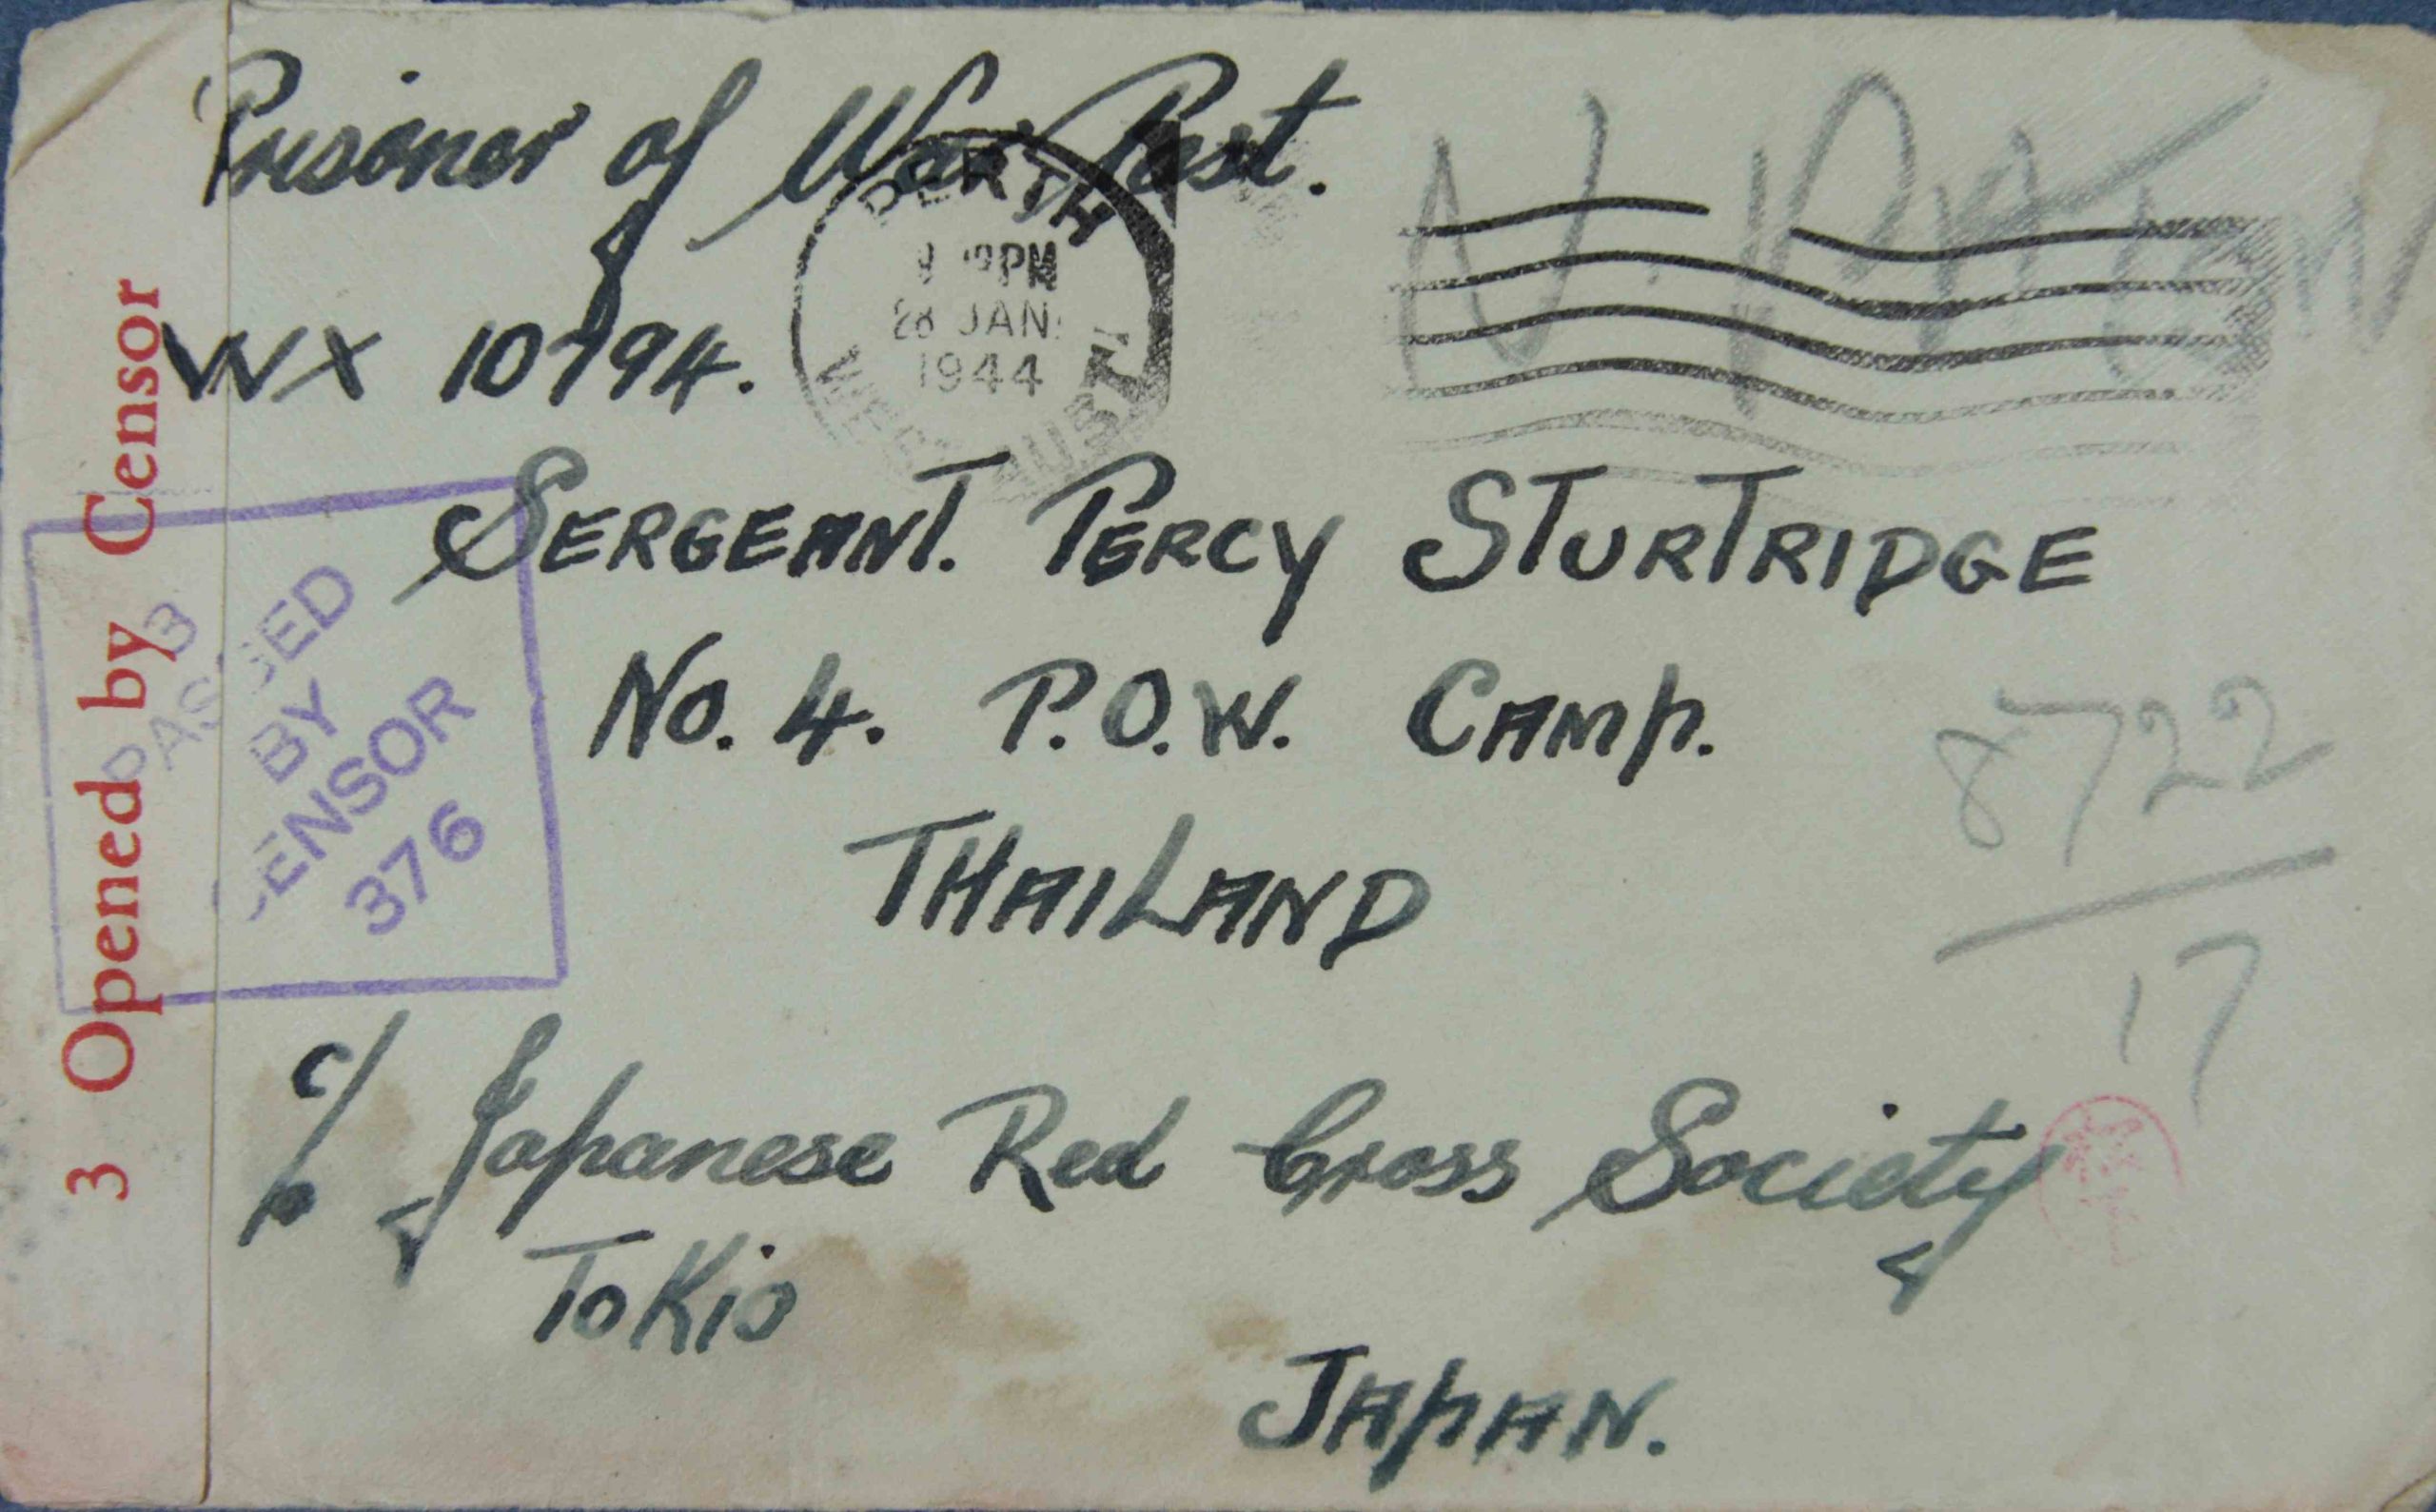 Prisoner of War Post.
PERTH
PM
28 JAN
1944
WX 10794.
SERGEANT. PERCY STURTRIDGE
No. 4. P.O.W. CAMP.
THAILAND
c/o Japanese Red Cross Society
ToKio
JAPAN.
3 Opened by Censor
3
PASSED
BY
CENSOR
376
8722
17